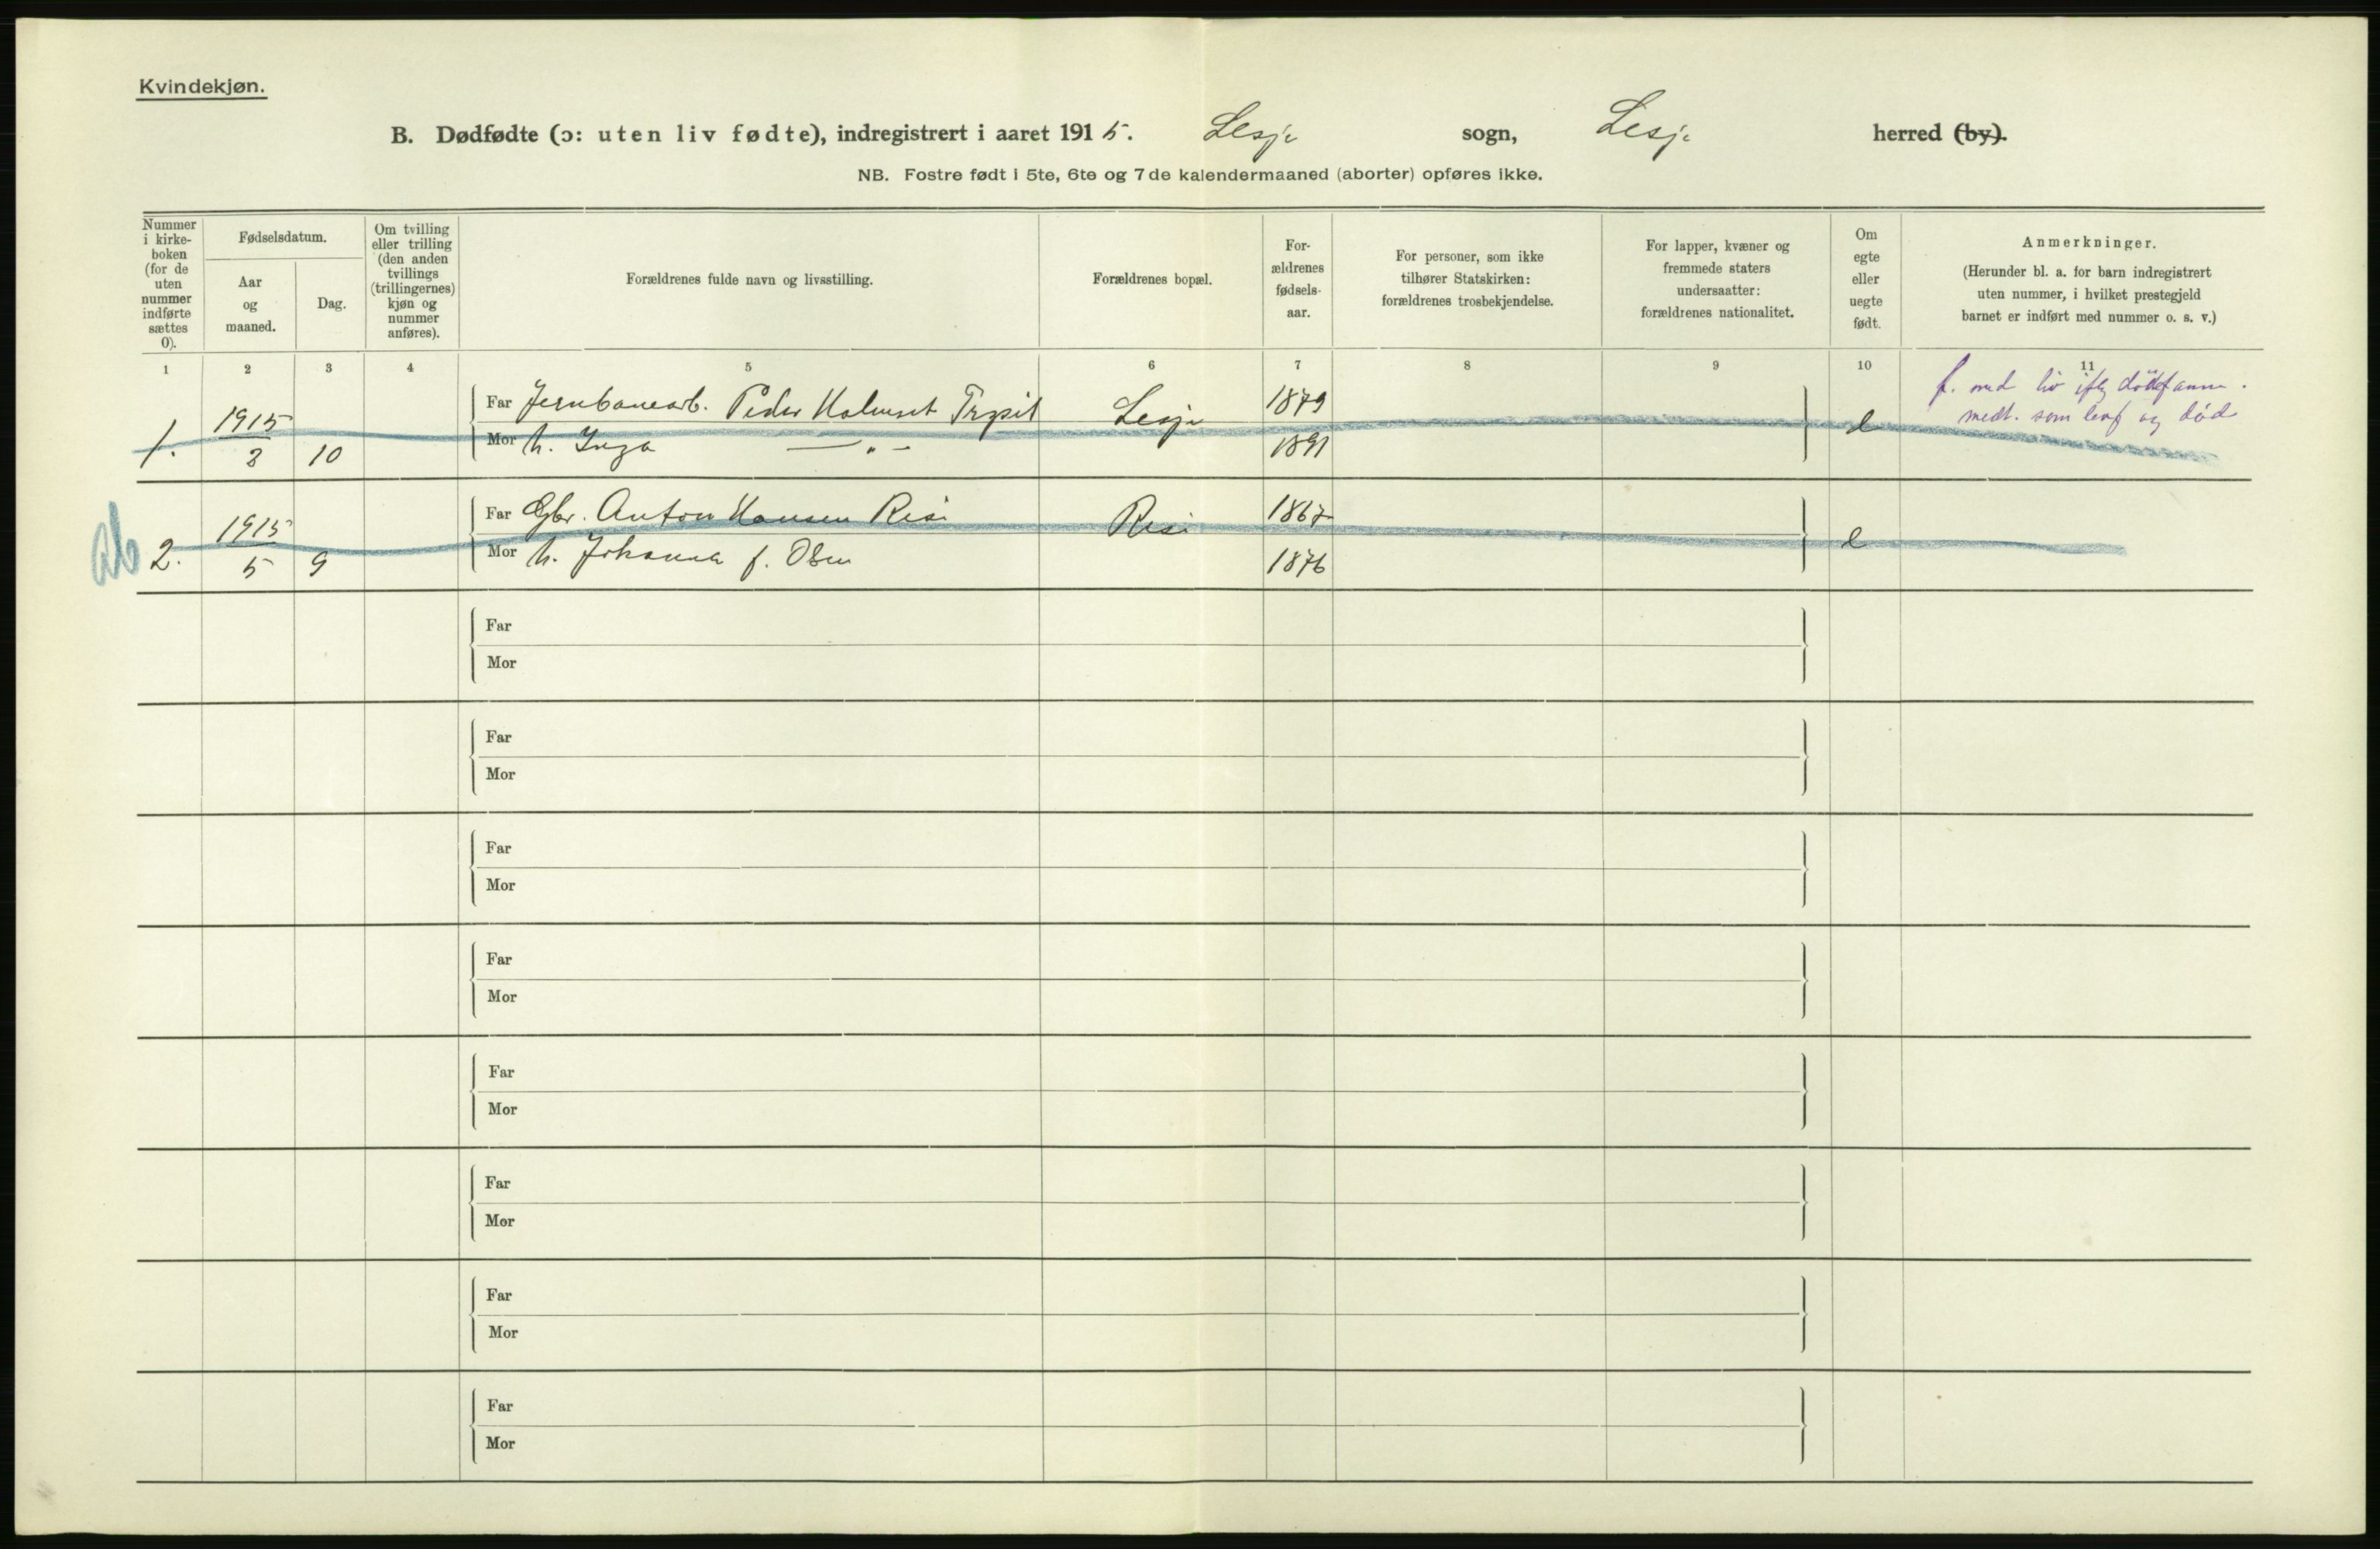 Kvindekjøn.
B. Dødfødte (ɔ: uten liv fødte), indregistrert i aaret 1915. Lesje sogn, Lesje herred (by).
NB. Fostre født i 5te, 6te og 7de kalendermaaned (aborter) opføres ikke.
Nummer
i kirke-
boken
(for de
uten
nummer
indførte
sættes
0).
Fødselsdatum.
Aar
og
maaned.
Dag.
Om tvilling
eller trilling
(den anden
tvillings
(trillingernes)
kjøn og
nummer
anføres).
Forældrenes fulde navn og livsstilling.
Forældrenes bopæl.
For-
ældrenes
fødsels-
aar.
For personer, som ikke
tilhører Statskirken:
forældrenes trosbekjendelse.
For lapper, kvæner og
fremmede staters
undersaatter:
forældrenes nationalitet.
Om
egte
eller
uegte
født.
Anmerkninger.
(Herunder bl. a. for barn indregistrert
uten nummer, i hvilket prestegjeld
barnet er indført med nummer o. s. v.)
1 2 3 4 5 6 7 8 9 10 11
1. 1915 3 10
Far Jernbanearb. Peder Holmset Trysil Lesje 1879
Mor h. Inga — " — 1891
e
f. med liv iflg dødsfanm.
medt. som levf og død
ab 2. 1915 5 9
Far Gbr. Anton Hansen Risi Risi 1867
Mor h. Johanna f. Olsen 1876
e
Far
Mor
Far
Mor
Far
Mor
Far
Mor
Far
Mor
Far
Mor
Far
Mor
Far
Mor